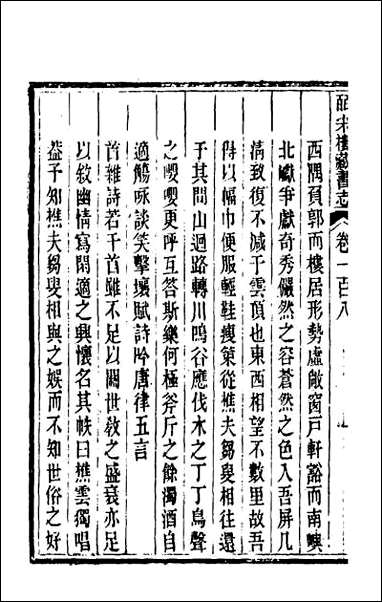 皕宋樓藏書志 卷一百八
西隅負郭而樓居形勢虛敞窗戶軒豁而南嶼
北巘爭獻奇秀儼然之容蒼然之色入吾屏几
淸致復不減于雲頂也東西相望不數里故吾
得以幅巾便服輕鞋瘦策從樵夫芻叟相往還
于其間山迴路轉川鳴谷應伐木之丁丁鳥聲
之嚶嚶更呼互答斯樂何極斧斤之餘濁酒自
適觴咏談笑擊壤賦詩吟唐律五言
首雜詩若干首雖不足以關世敎之盛衰亦足
以敍幽情寫閒適之興懷名其帙曰樵雲獨唱
葢予知樵夫芻叟相與之娛而不知世俗之好